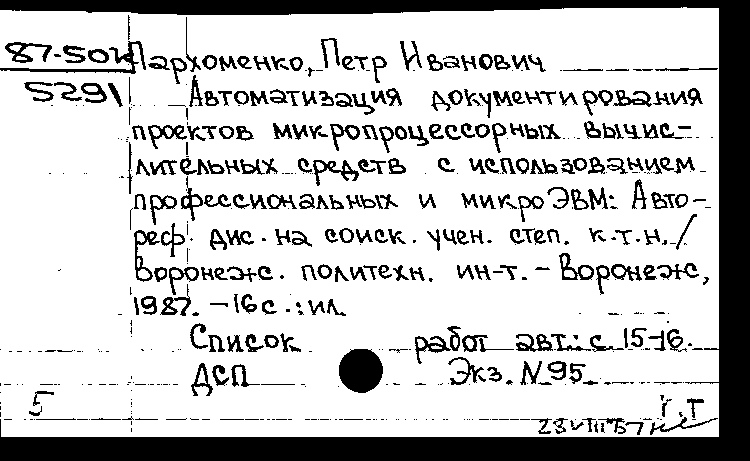 87-50к Пархоменко, Петр Иванович
5291 Автоматизация документирования
проектов микропроцессорных вычис-
лительных средств с использованием
профессиональных и микроЭВМ: Авто-
реф. дис. на соиск. учен. степ. к.т.н. /
Воронеж. политехн. ин-т. - Воронеж,
1987. - 16 с. : ил.
Список работ авт.: с. 15-16.
ДСП Экз. N 95
5 г.т
28 VIII 87